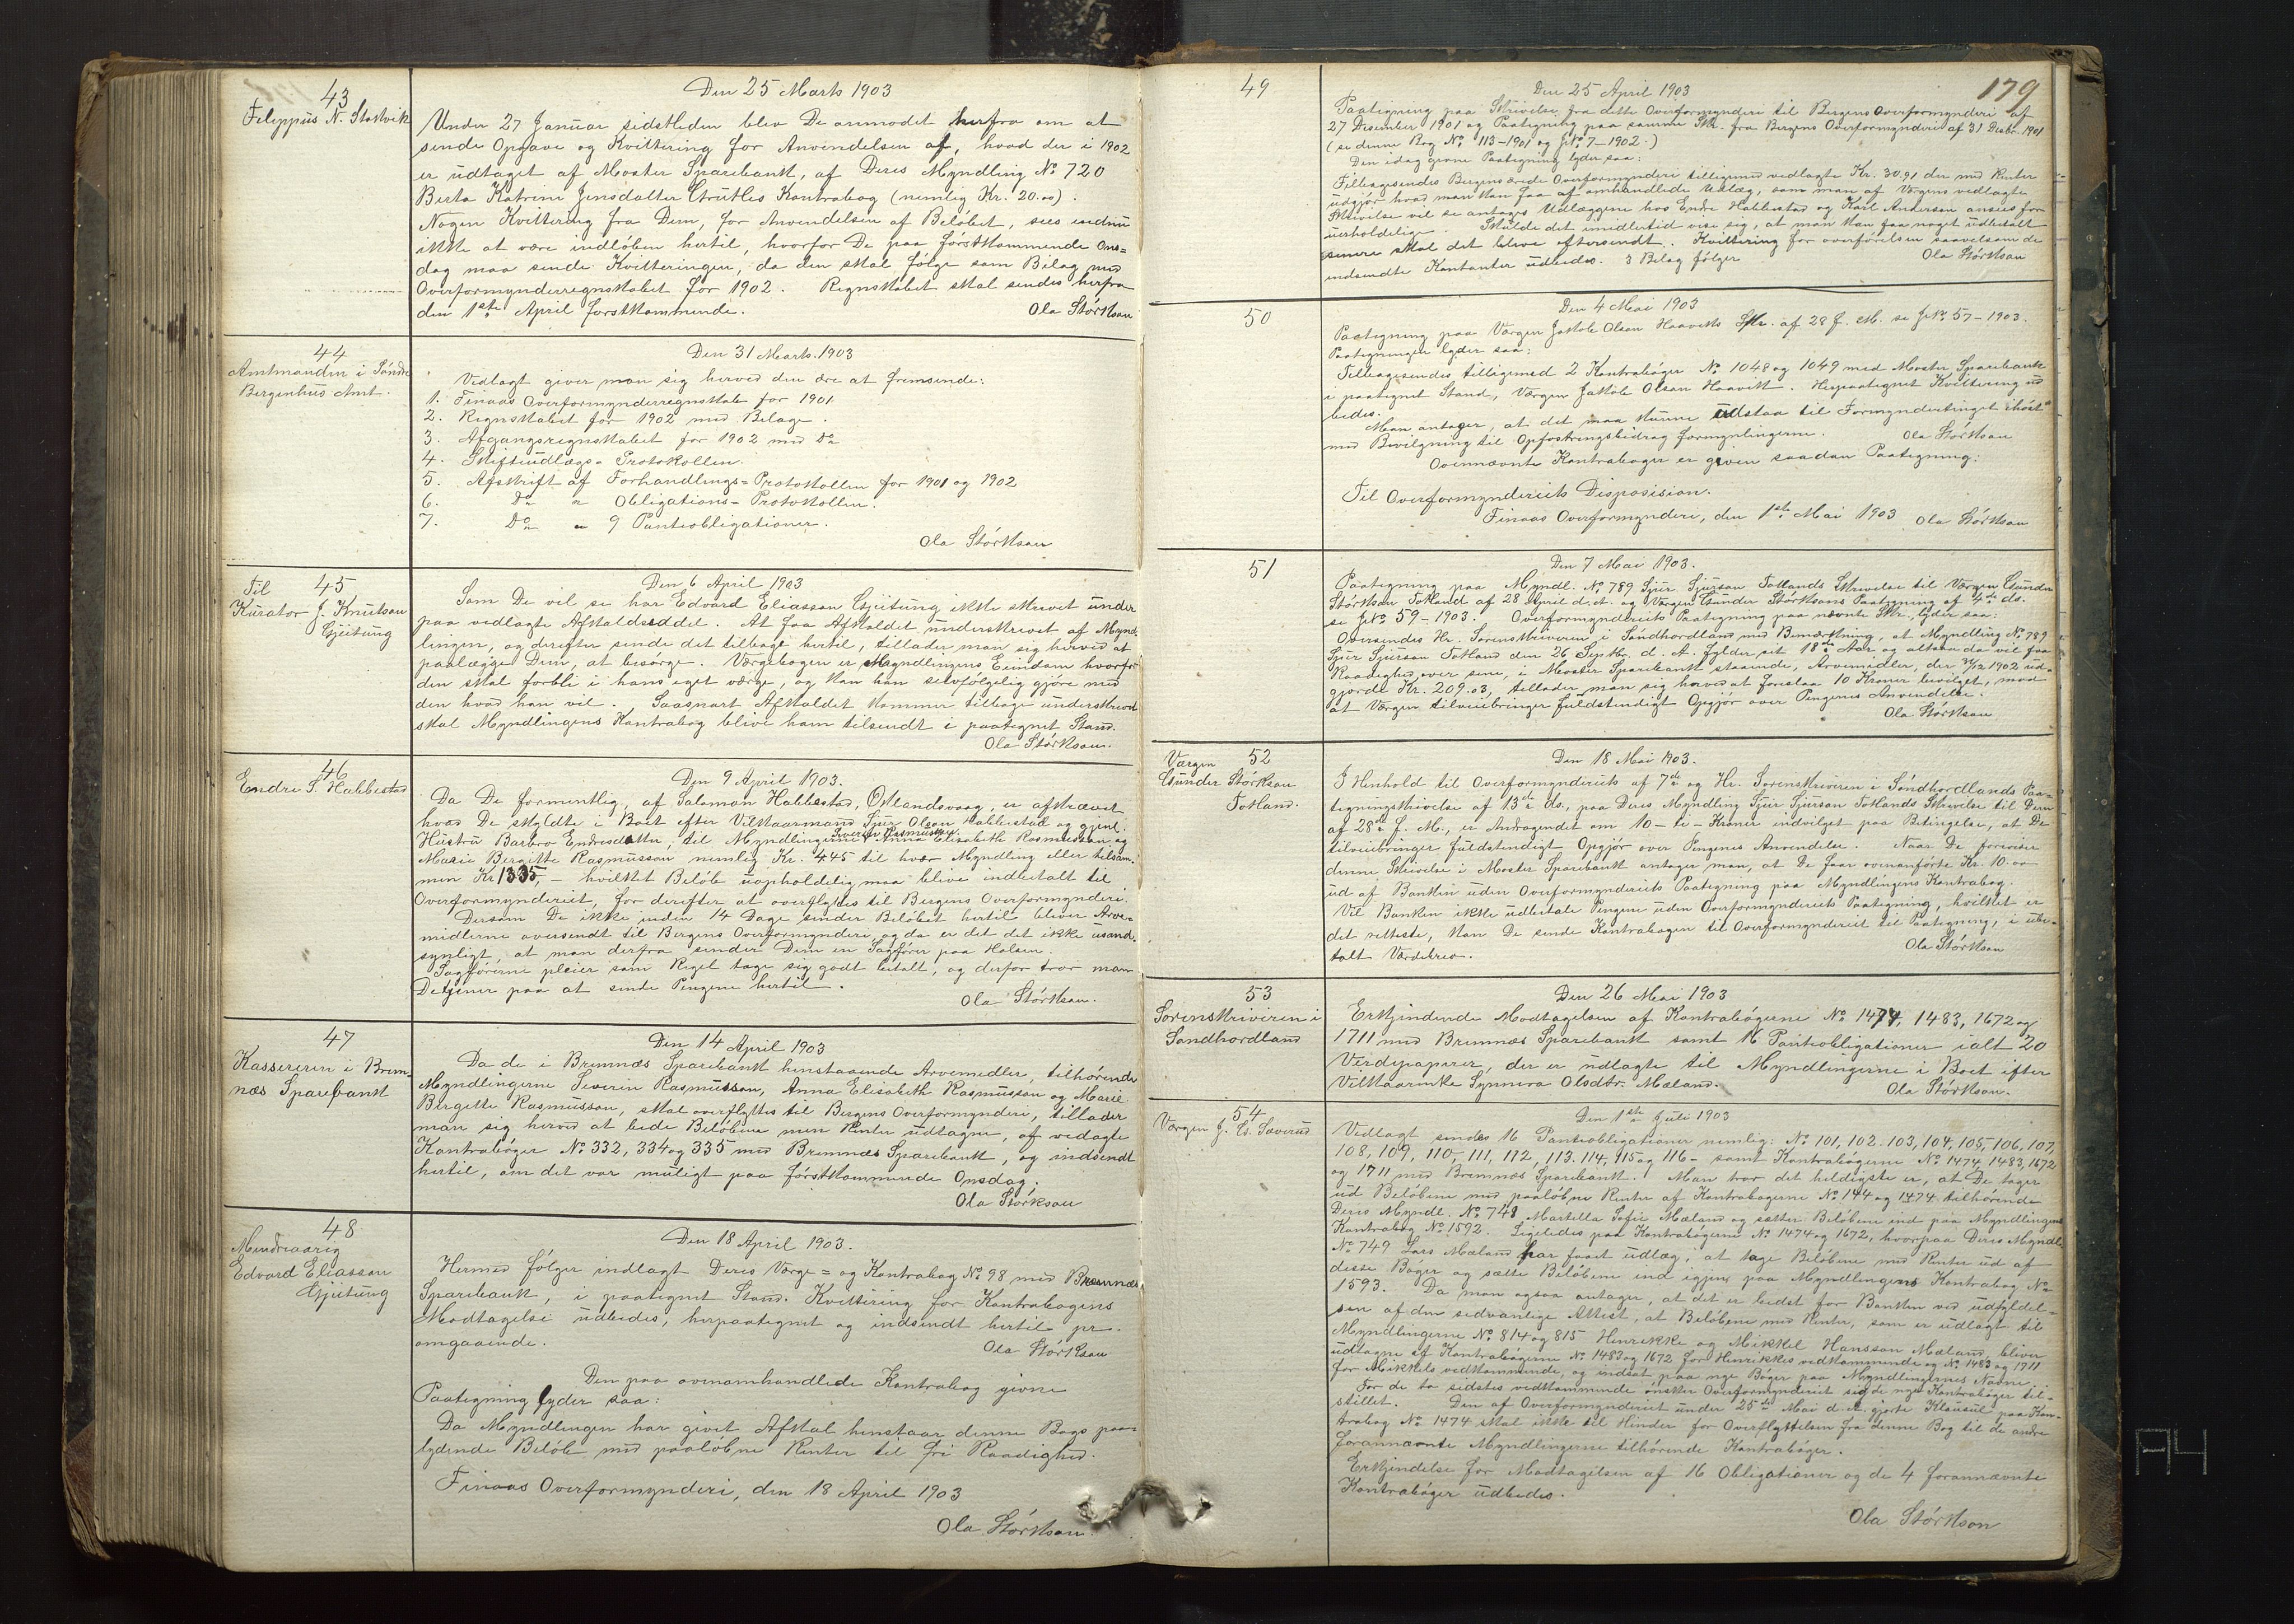 43
Filippus N. Stokvik
Den 25 Marts 1903
Under 27 Januar sidstleden blev De anmodet herfra om at
sende Opgave og Kvittering for Anvendelsen af, hvad der i 1902
er udtaget af Moster Sparebank, af Deres Myndling No 720
Berta Katrine Jensdatter Grutles Kontrabog (nemlig Kr. 20.00).
Nogen Kvittering fra Dem, for Anvendelsen af Beløbet, sees endnu
ikke at være indløben hertil, hvorfor De paa førstkommende Ons=
dag maa sende Kvitteringen, da den skal følge som Bilag med
Overformynderregnskabet for 1902. Regnskabet skal sendes herfra
den 1ste April førstkommende.
Ola Størkson
44
Amtmanden i Søndre
Bergenhus Amt.
Den 31 Marts 1903
Vedlagt giver man sig herved den ære at fremsende:
1. Finaas Overformynderregnskab for 1901
2. Regnskabet for 1902 med Bilage.
3. Afgangsregnskabet for 1902 med Do
4. Skifteudlægs-Protokollen.
5. Afskrift af Forhandlings-Protokollen for 1901 og 1902
6. Do " Obligations-Protokollen.
7. Do " 9 Panteobligationer.
Ola Størkson
45
Til
Kurator J. Knutson
Gjeitung
Den 6 April 1903
Som De vil se har Edvard Eliasson Gjeitung ikke skrevet under
paa vedlagte Afkaldseddel. At faa Afkaldet underskrevet af Mynd-
lingen, og derefter sende det tilbage hertil, tillader man sig herved at
paalægge Dem, at besørge. Værgebogen er Myndlingens Eiendom hvorfor
den skal forbli i hans eget værge, og kan han selvfølgelig gjøre med
den hvad han vil. Saasnart Afkaldet kommer tilbage underskrevet
skal Myndlingens Kontrabog blive ham tilsendt i paategnet Stand.
Ola Størkson.
46
Endre S. Habbestad
Den 9 April 1903.
Da De formentlig, af Salomon Habbestad, Østlandsvaag, er afkrævet
hvad De skyldte i Boet efter Vilkaarmand Sjur Olson Habbestad og gjenl.
Hustru Barbro Endresdatter, til Myndlingerne Severin Rasmusson, Anna Elisabeth Rasmusson og
Marie Bergitte Rasmusson nemlig Kr. 445 til hver Myndling eller tilsam-
men Kr 1335,- hvilket Beløb uopholdelig maa blive indbetalt til
Overformynderiet, for derefter at overflyttes til Bergens Overformynderi.
Dersom De ikke inden 14 Dage sender Beløbet hertil bliver Arve-
midlerne oversendt til Bergens Overformynderi, og da er det det ikke usand-
synligt, at man derfra sender Dem en Sagfører paa Halsen.
Sagførerne pleier som Regel tage sig godt betalt, og derfor tror man
De tjener paa at sende Pengene hertil.
Ola Størkson.
47
Kassereren i Brem-
næs Sparebank
Den 14 April 1903
Da de i Bremnæs Sparebank henstaaende Arvemidler, tilhørende
Myndlingerne Severin Rasmusson, Anna Elisabeth Rasmusson og Marie
Bergitte Rasmusson, skal overflyttes til Bergens Overformynderi, tillader
man sig herved at bede Beløbene men Renter udtagne, af vedagte
Kontrabøger No 332, 334 og 335 med Bremnæs Sparebank, og indsendt
hertil, om det var muligt paa førstkommende Onsdag.
Ola Størkson
48
Mindreaarig
Edvard Eliasson
Gjeitung
Den 18 April 1903.
Hermed følger indlagt Deres Værge= og Kontrabog No 98 med Bremnæs
Sparebank, i paategnet Stand. Kvittering for Kontrabogens
Modtagelse udbedes, herpaategnet og indsendt hertil pr.
omgaaende.
Ola Størkson
Den paa ovenomhandlede Kontrabog givne
Paategning lyder saa:
Da Myndlingen har givet Afkal henstaar denne Bogs paa-
lydende Beløb med paaløbne Renter til fri Raadighed.
Finaas Overformynderi, den 18 April 1903
Ola Størkson.
179
49
Den 25 April 1903
Paategning paa Skrivelse fra dette Overformynderi til Bergens Overformynderi af
27 Desember 1901 og Paategning paa samme Skr. fra Bergens Overformynderi af 31 Desbr. 1901
(se denne Bog No 113-1901 og JNo 7-1902.)
Den idag givne Paategning lyder saa:
Tilbagesendes Bergens ærede Overformynderi tilligemed vedlagte Kr. 30.91 der med Renter
udgjør hvad man kan faa af omhandlede Udlæg, som man af Værgens vedlagte
Skrivelse vil se antages Udlæggene hos Endre Habbestad og Karl Anderson ansees for
uerholdelige. Skulde det imidlertid vise sig, at man kan faa noget udbetalt
senere skal det blive eftersendt. Kvittering for overførelsen saavelsom de
indsendte Kontanter udbedes. 3 Bilag følger
Ola Størkson
50
Den 4 Mai 1903
Paategning paa Værgen Jakob Olson Haaviks Skr. af 28 f. M. se JNo 57-1903.
Paategningen lyder saa:
Tilbagesendes tilligemed 2 Kontrabøger No 1048 og 1049 med Moster Sparebank
i paategnet Stand, Værgen Jakob Olson Haavik. Herpaategnet Kvittering ud
bedes.
Man antager, at det maa kunne udstaa til Formyndertinget ihøst
med Bevilgning til Opfostringsbidrag formynlingerne.
Ola Størkson
Ovennævnte Kontrabøger er given saadan Paategning:
Til Overformynderiets Disposision.
Finaas Overformynderi, den 1ste Mai 1903 Ola Størkson
51
Den 7 Mai 1903.
Paategning paa Myndl. No 789 Sjur Sjurson Totlands Skrivelse til Værgen Gunder
Størkson Totland af 28 April d. A. og Værgen Gunder Størksons Paategning af 4de ds.
se JNo 59-1903. Overformynderiets Paategning paa nævnte Skr. lyder saa:
Oversendes Hr. Sorenskriveren i Søndhordland med Bemærkning, at Myndling No 789
Sjur Sjurson Totland den 26 Septbr. d. A. fylder sit 18de Aar og altsaa da vil faa
Raadighed over sine, i Moster Sparebank staaende, Arvemidler, der 31/12 1902 ud-
gjorde Kr. 209.03, tillader man sig herved at foreslaa 10 Kroner bevilget, mod
at Værgen tilveiebringer fuldstendigt Opgjør over Pengenes Anvendelse.
Ola Størkson
52
Værgen
Gunder Størkson
Totland.
Den 18 Mai 1903.
I Henhold til Overformynderiets af 7de og Hr. Sorenskriveren i Søndhordlands Paa-
tegningsskrivelse af 13de ds. paa Deres Myndling Sjur Sjurson Totlands Skrivelse til Dem
af 28de f. M., er Andragendet om 10-ti-Kroner indvilget paa Betingelse, at De
tilveiebringer fuldstendigt Opgjør over Pengenes Anvendelse. Naar De foreviser
denne Skrivelse i Moster Sparebank antager man, at De faar ovenanførte Kr. 10.00
ud af Banken uden Overformynderiets Paategning paa Myndlingens Kontrabog.
Vil Banken ikke udbetale Pengene uden Overformynderiets Paategning, hvilket er
det retteste, kan De sende Kontrabogen til Overformynderiet til Paategning, i ube-
talt Værdibrev.
Ola Størkson
53
Sorenskriveren i
Søndhordland
Den 26 Mai 1903
Erkjendende Modtagelsen af Kontrabøgerne No 1474, 1483, 1672 og
1711 med Bremnæs Sparebank samt 16 Panteobligationer ialt 20
Verdipaparer, der er udlagte til Myndlingerne i Boet efter
Vilkaarinke Synneva Olsdtr. Mæland.
Ola Størkson.
54
Værgen J. G. Sæverud
Den 1ste Juli 1903
Vedlagt sendes 16 Panteobligationer nemlig: No 101, 102. 103, 104, 105, 106, 107,
108, 109, 110, 111, 112, 113. 114, 115 og 116 - samt Kontrabøgerne No 1474, 1483, 1672
og 1711 med Bremnæs Sparebank. Man tror det heldigste er, at De tager
ud Beløbene med paaløbne Renter af Kontrabøgerne No 144 og 1474 tilhørende
Deres Myndl. No 748 Martella Sofie Mæland og sætter Beløbene ind paa Myndlingens
Kontrabog No 1592. Ligeledes paa Kontrabøgerne No 1474 og 1672, hvorpaa Deres Myndl.
No 749 Lars Mæland har faaet udlæg, at tage Beløbene med Renter ud af
disse Bøger og sætte Beløbene ind igjen paa Myndlingens Kontrabog No
1593. Da man ogsaa antager, at det er bedst for Banken ved udfyldel-
sen af den sedvanlige Attest, at Beløbene med Renter, som er udlagt til
Myndlingerne No 814 og 815 Henrikke og Mikkel Hansson Mæland, bliver
udtagne af Kontrabøgerne No 1483 og 1672 for Henrikkes vedkommende og No 1483 og 1711
for Mikkels vedkommende, og indsat paa nye Bøger paa Myndlingernes Navne.
For de to sidstes vedkommende ønsker Overformynderiet sig de nye Kontrabøger til-
stillet. Den af Overformynderiet under 25de Mai d. A. gjorte Klausul paa Kon-
trabog No 1474 skal ikke til Hinder for Overflyttelsen fra denne Bog til de andre
forannævnte Myndlingerne tilhørende Kontrabøger.
Erkjendelse for Modtagelsen af 16 Obligationer og de 4 forannævnte
Kontrabøger udbedes.
Ola Størkson